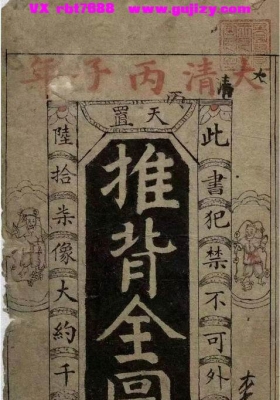 VX rbt7688  www.gujizy.com
大清丙子年
天置
此書犯禁不可外
推背全圖
陸拾柒像大約千